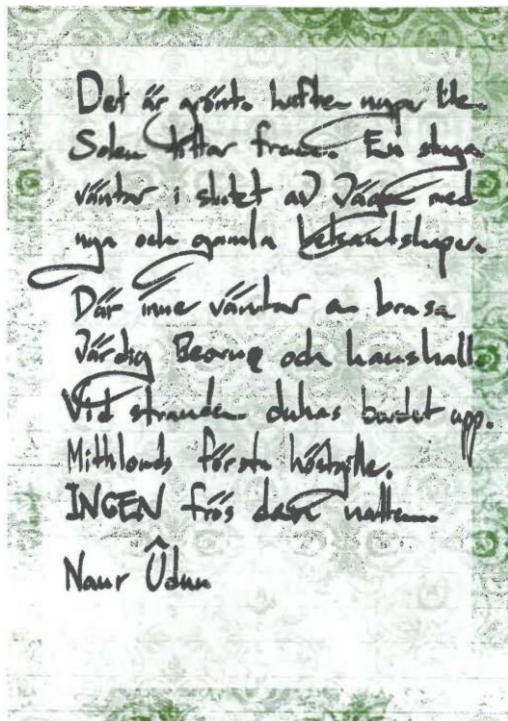 Det är grönt. Luften nyper lite.
Solen tittar fram. En stuga
väntar i slutet av vägen med
nya och gamla bekantskaper.
Där inne väntar en brasa
värdig Beorn och hans hall.
Vid stranden dukas bordet upp.
Mithlonds första höstgille.
INGEN frös den natten.
Naur Ûdun